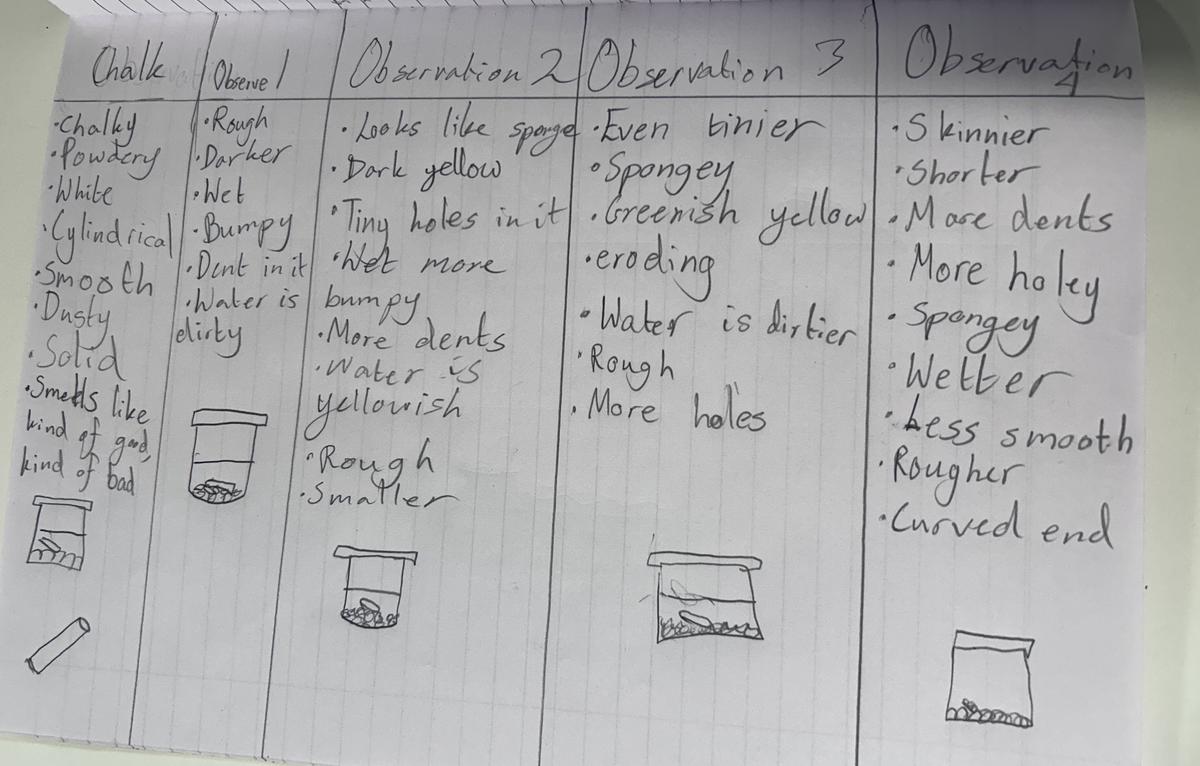 Chalk
·Chalky
·Powdery
·White
·Cylindrical
·Smooth
·Dusty
·Solid
·Smells like
kind of good,
kind of bad
Observe 1
·Rough
·Darker
·Wet
·Bumpy
·Dent in it
·Water is
dirty
Observation 2
·Looks like sponge
·Dark yellow
·Tiny holes in it
·Wet more
bumpy
·More dents
·Water is
yellowish
·Rough
·Smaller
Observation 3
·Even tinier
·Spongey
·Greenish yellow
·eroding
·Water is dirtier
·Rough
·More holes
Observation
4
·Skinnier
·Shorter
·More dents
·More holey
·Spongey
·Wetter
·Less smooth
·Rougher
·Curved end